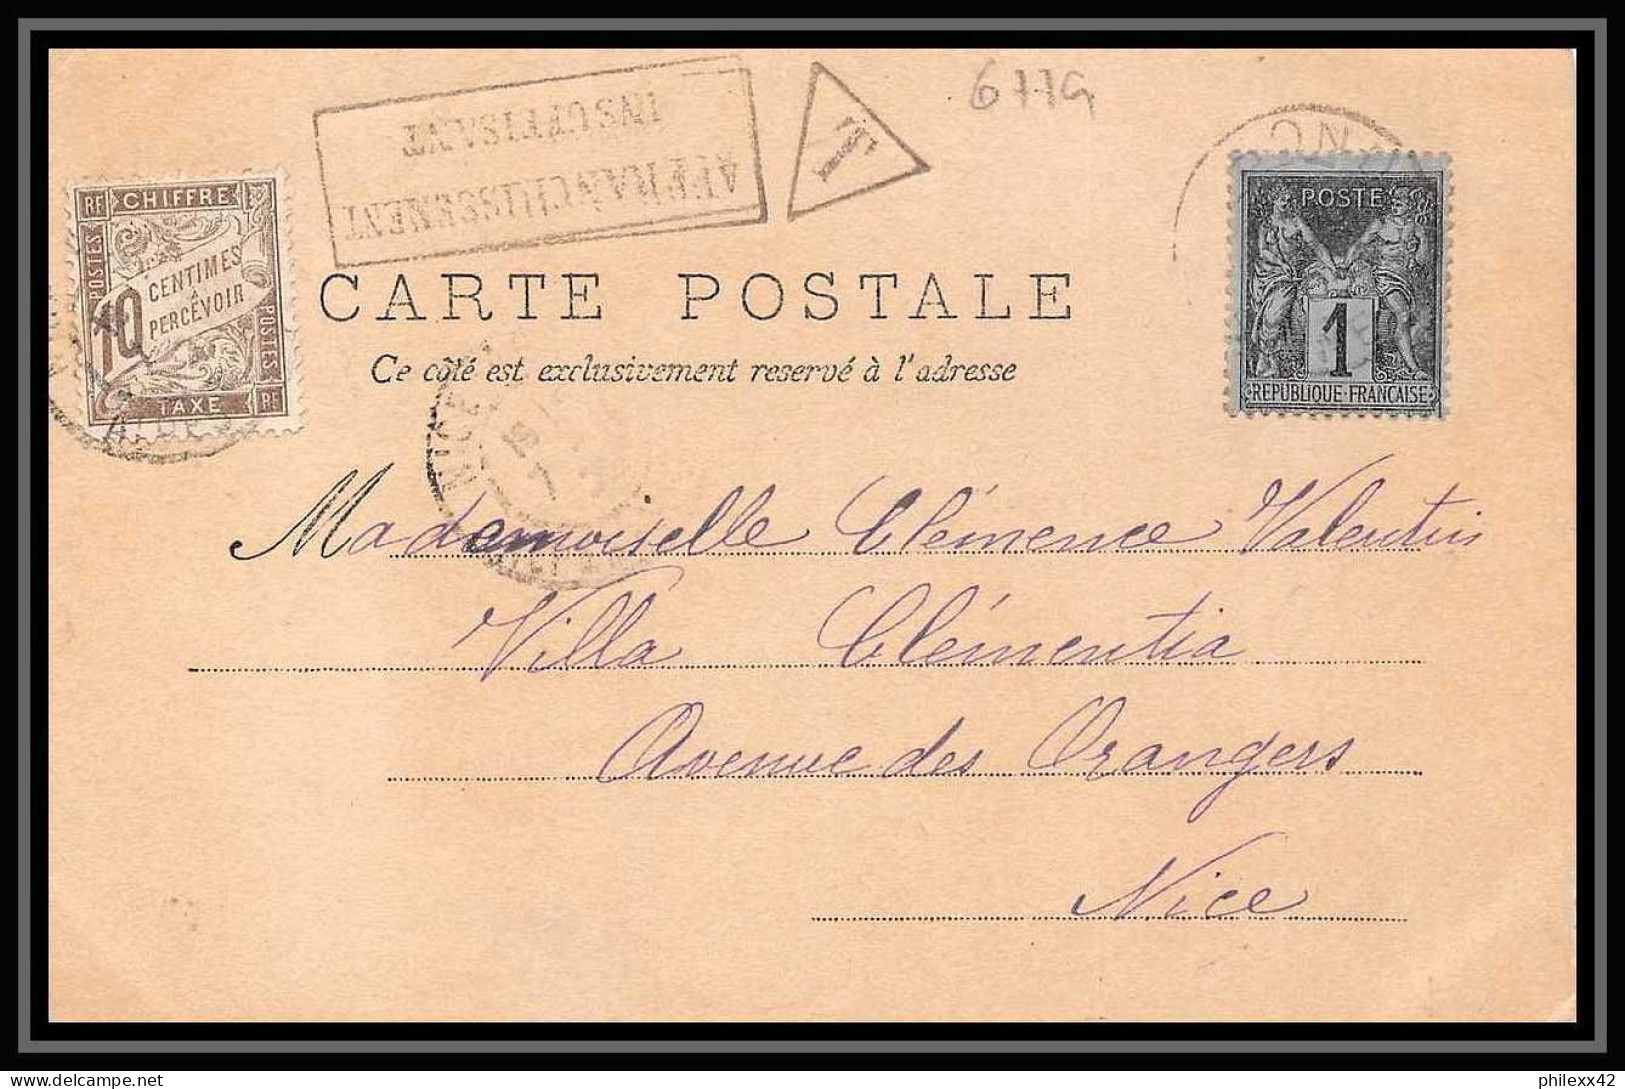 6779
AFFRANCHISSEMENT
INSUFFISANT
T
RF CHIFFRE
POSTES
10 CENTIMES
À
PERCEVOIR
POSTES
TAXE RF
POSTE
1
REPUBLIQUE FRANÇAISE
CARTE POSTALE
Ce côté est exclusivement reservé à l'adresse
NICE
Mademoiselle Clémence Valentin
Villa Clémentia
Avenue des Orangers
Nice
philexx42